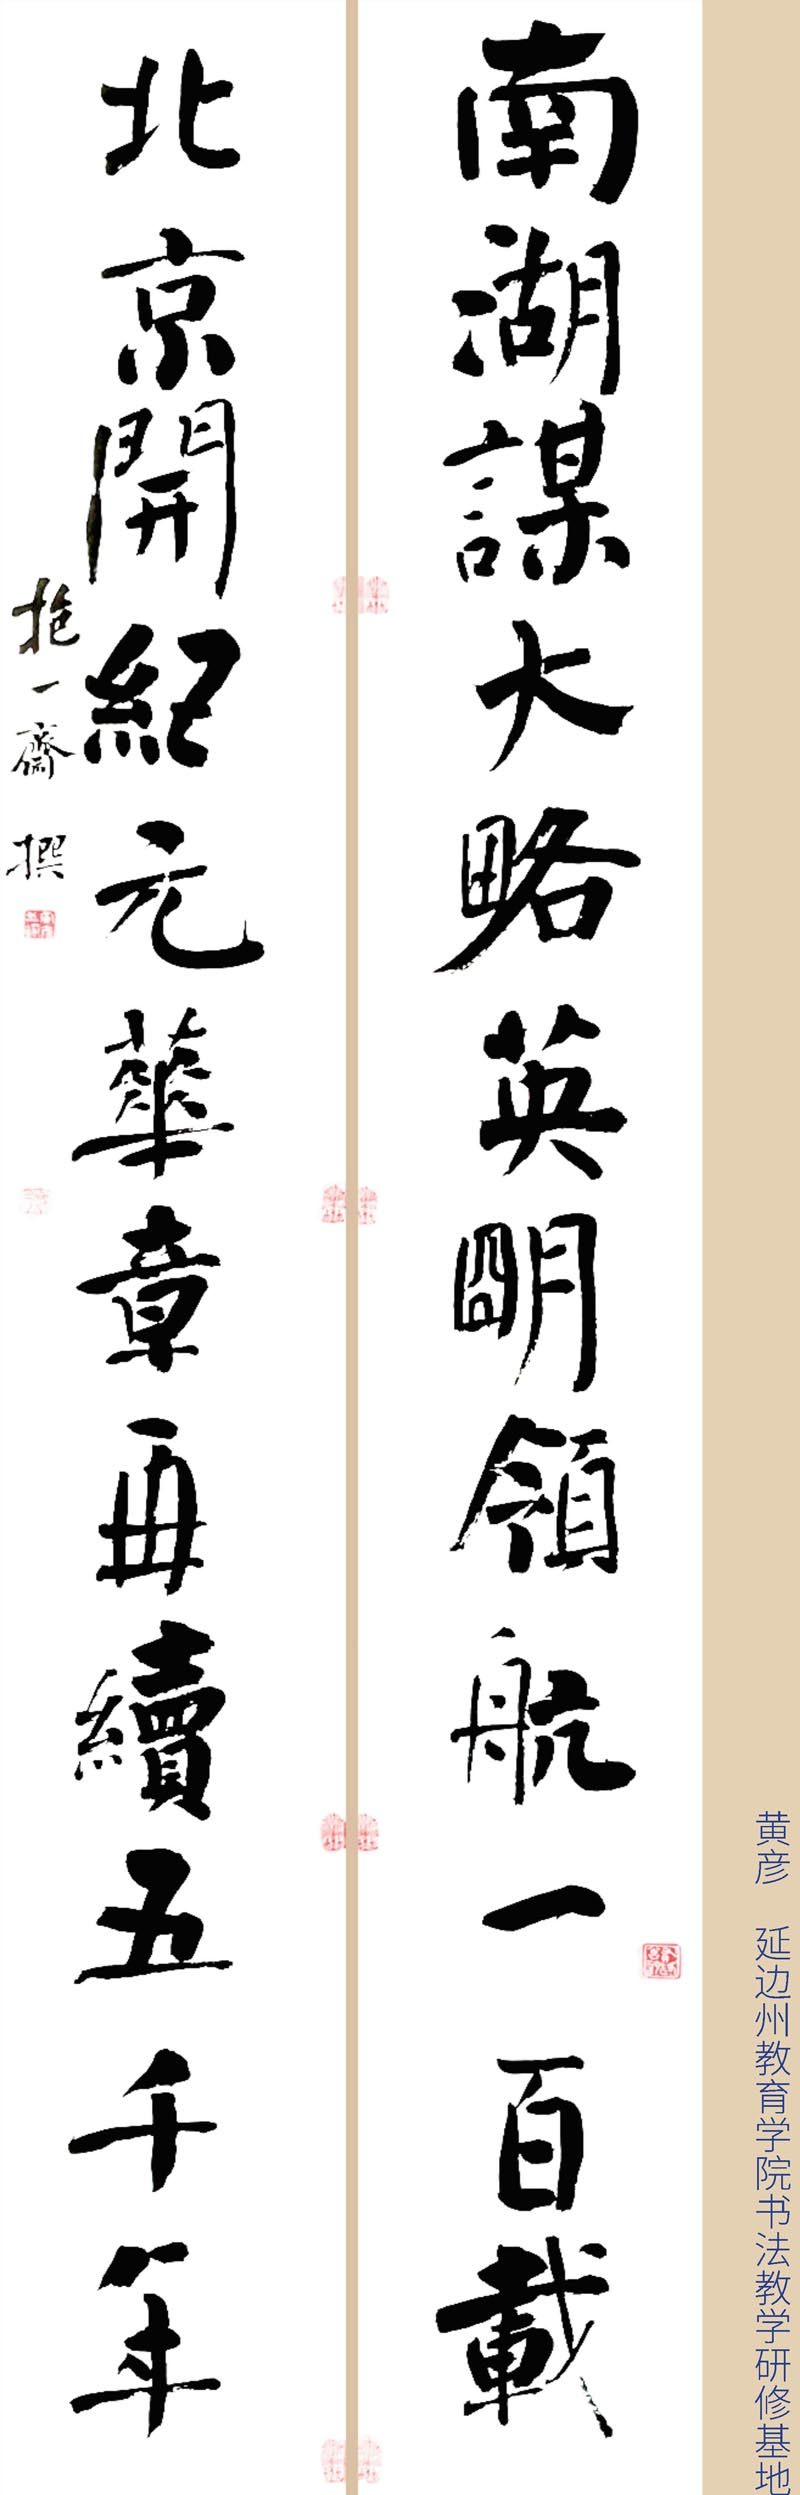 南湖謀大略英明領航一百載
北京開紀元華章再續五千年
抱一齋 撰
黄彦 延边州教育学院书法教学研修基地